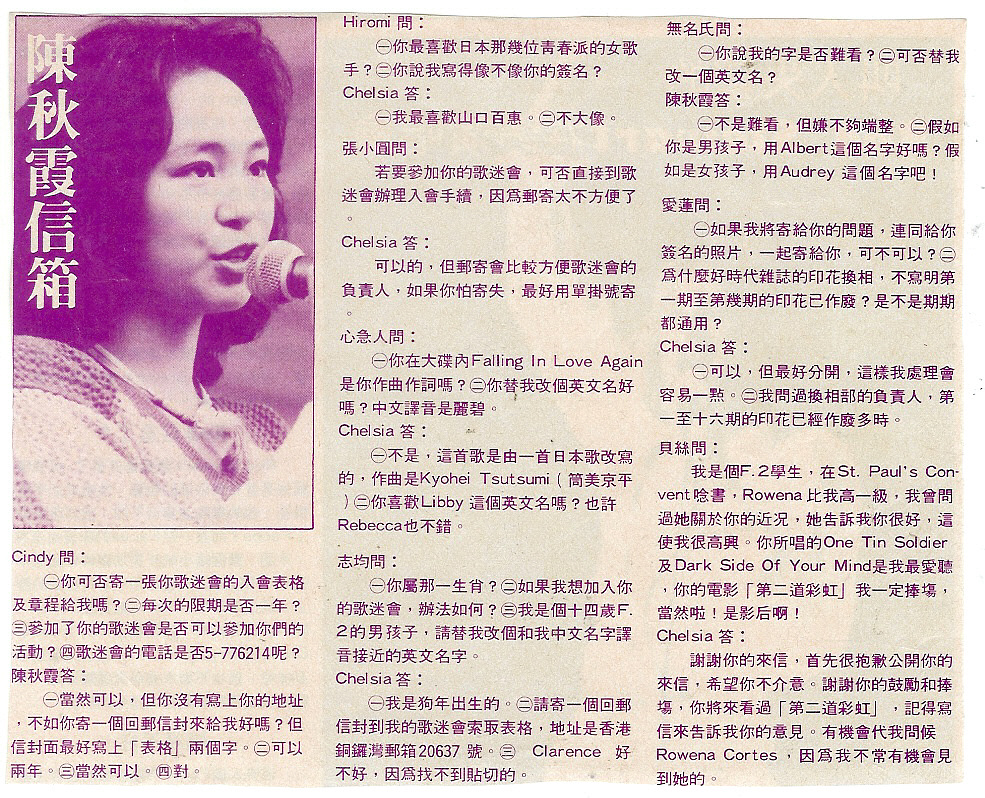 陳秋霞信箱
Cindy 問：
㊀你可否寄一張你歌迷會的入會表格
及章程給我嗎？㊁每次的限期是否一年？
㊂參加了你的歌迷會是否可以參加你們的
活動？㊃歌迷會的電話是否5-776214呢？
陳秋霞答：
㊀當然可以，但你沒有寫上你的地址
，不如你寄一個回郵信封來給我好嗎？但
信封面最好寫上「表格」兩個字。㊁可以
兩年。㊂當然可以。㊃對。
Hiromi 問：
㊀你最喜歡日本那幾位青春派的女歌
手？㊁你說我寫得像不像你的簽名？
Chelsia 答：
㊀我最喜歡山口百惠。㊁不大像。
張小圓問：
若要參加你的歌迷會，可否直接到歌
迷會辦理入會手續，因爲郵寄太不方便了
。
Chelsia 答：
可以的，但郵寄會比較方便歌迷會的
負責人，如果你怕寄失，最好用單掛號寄
。
心急人問：
㊀你在大碟內Falling In Love Again
是你作曲作詞嗎？㊁你替我改個英文名好
嗎？中文譯音是麗碧。
Chelsia 答：
㊀不是，這首歌是由一首日本歌改寫
的，作曲是Kyohei Tsutsumi（筒美京平
）㊁你喜歡Libby 這個英文名嗎？也許
Rebecca也不錯。
志均問：
㊀你屬那一生肖？㊁如果我想加入你
的歌迷會，辦法如何？㊂我是個十四歲F.
2的男孩子，請替我改個和我中文名字譯
音接近的英文名字。
Chelsia 答：
㊀我是狗年出生的。㊁請寄一個回郵
信封到我的歌迷會索取表格，地址是香港
銅鑼灣郵箱20637 號。㊂ Clarence 好
不好，因爲找不到貼切的。
無名氏問：
㊀你說我的字是否難看？㊁可否替我
改一個英文名？
陳秋霞答：
㊀不是難看，但嫌不夠端整。㊁假如
你是男孩子，用Albert這個名字好嗎？假
如是女孩子，用Audrey 這個名字吧！
愛蓮問：
㊀如果我將寄給你的問題，連同給你
簽名的照片，一起寄給你，可不可以？㊁
爲什麼好時代雜誌的印花換相，不寫明第
一期至第幾期的印花已作廢？是不是期期
都通用？
Chelsia 答：
㊀可以，但最好分開，這樣我處理會
容易一點。㊁我問過換相部的負責人，第
一至十六期的印花已經作廢多時。
貝絲問：
我是個F.2學生，在St. Paul's Con-
vent唸書，Rowena 比我高一級，我曾問
過她關於你的近況，她告訴我你很好，這
使我很高興。你所唱的One Tin Soldier
及Dark Side Of Your Mind是我最愛聽
，你的電影「第二道彩虹」我一定捧塲，
當然啦！是影后啊！
Chelsia 答：
謝謝你的來信，首先很抱歉公開你的
來信，希望你不介意。謝謝你的鼓勵和捧
塲，你將來看過「第二道彩虹」，記得寫
信來告訴我你的意見。有機會代我問候
Rowena Cortes，因爲我不常有機會見
到她的。